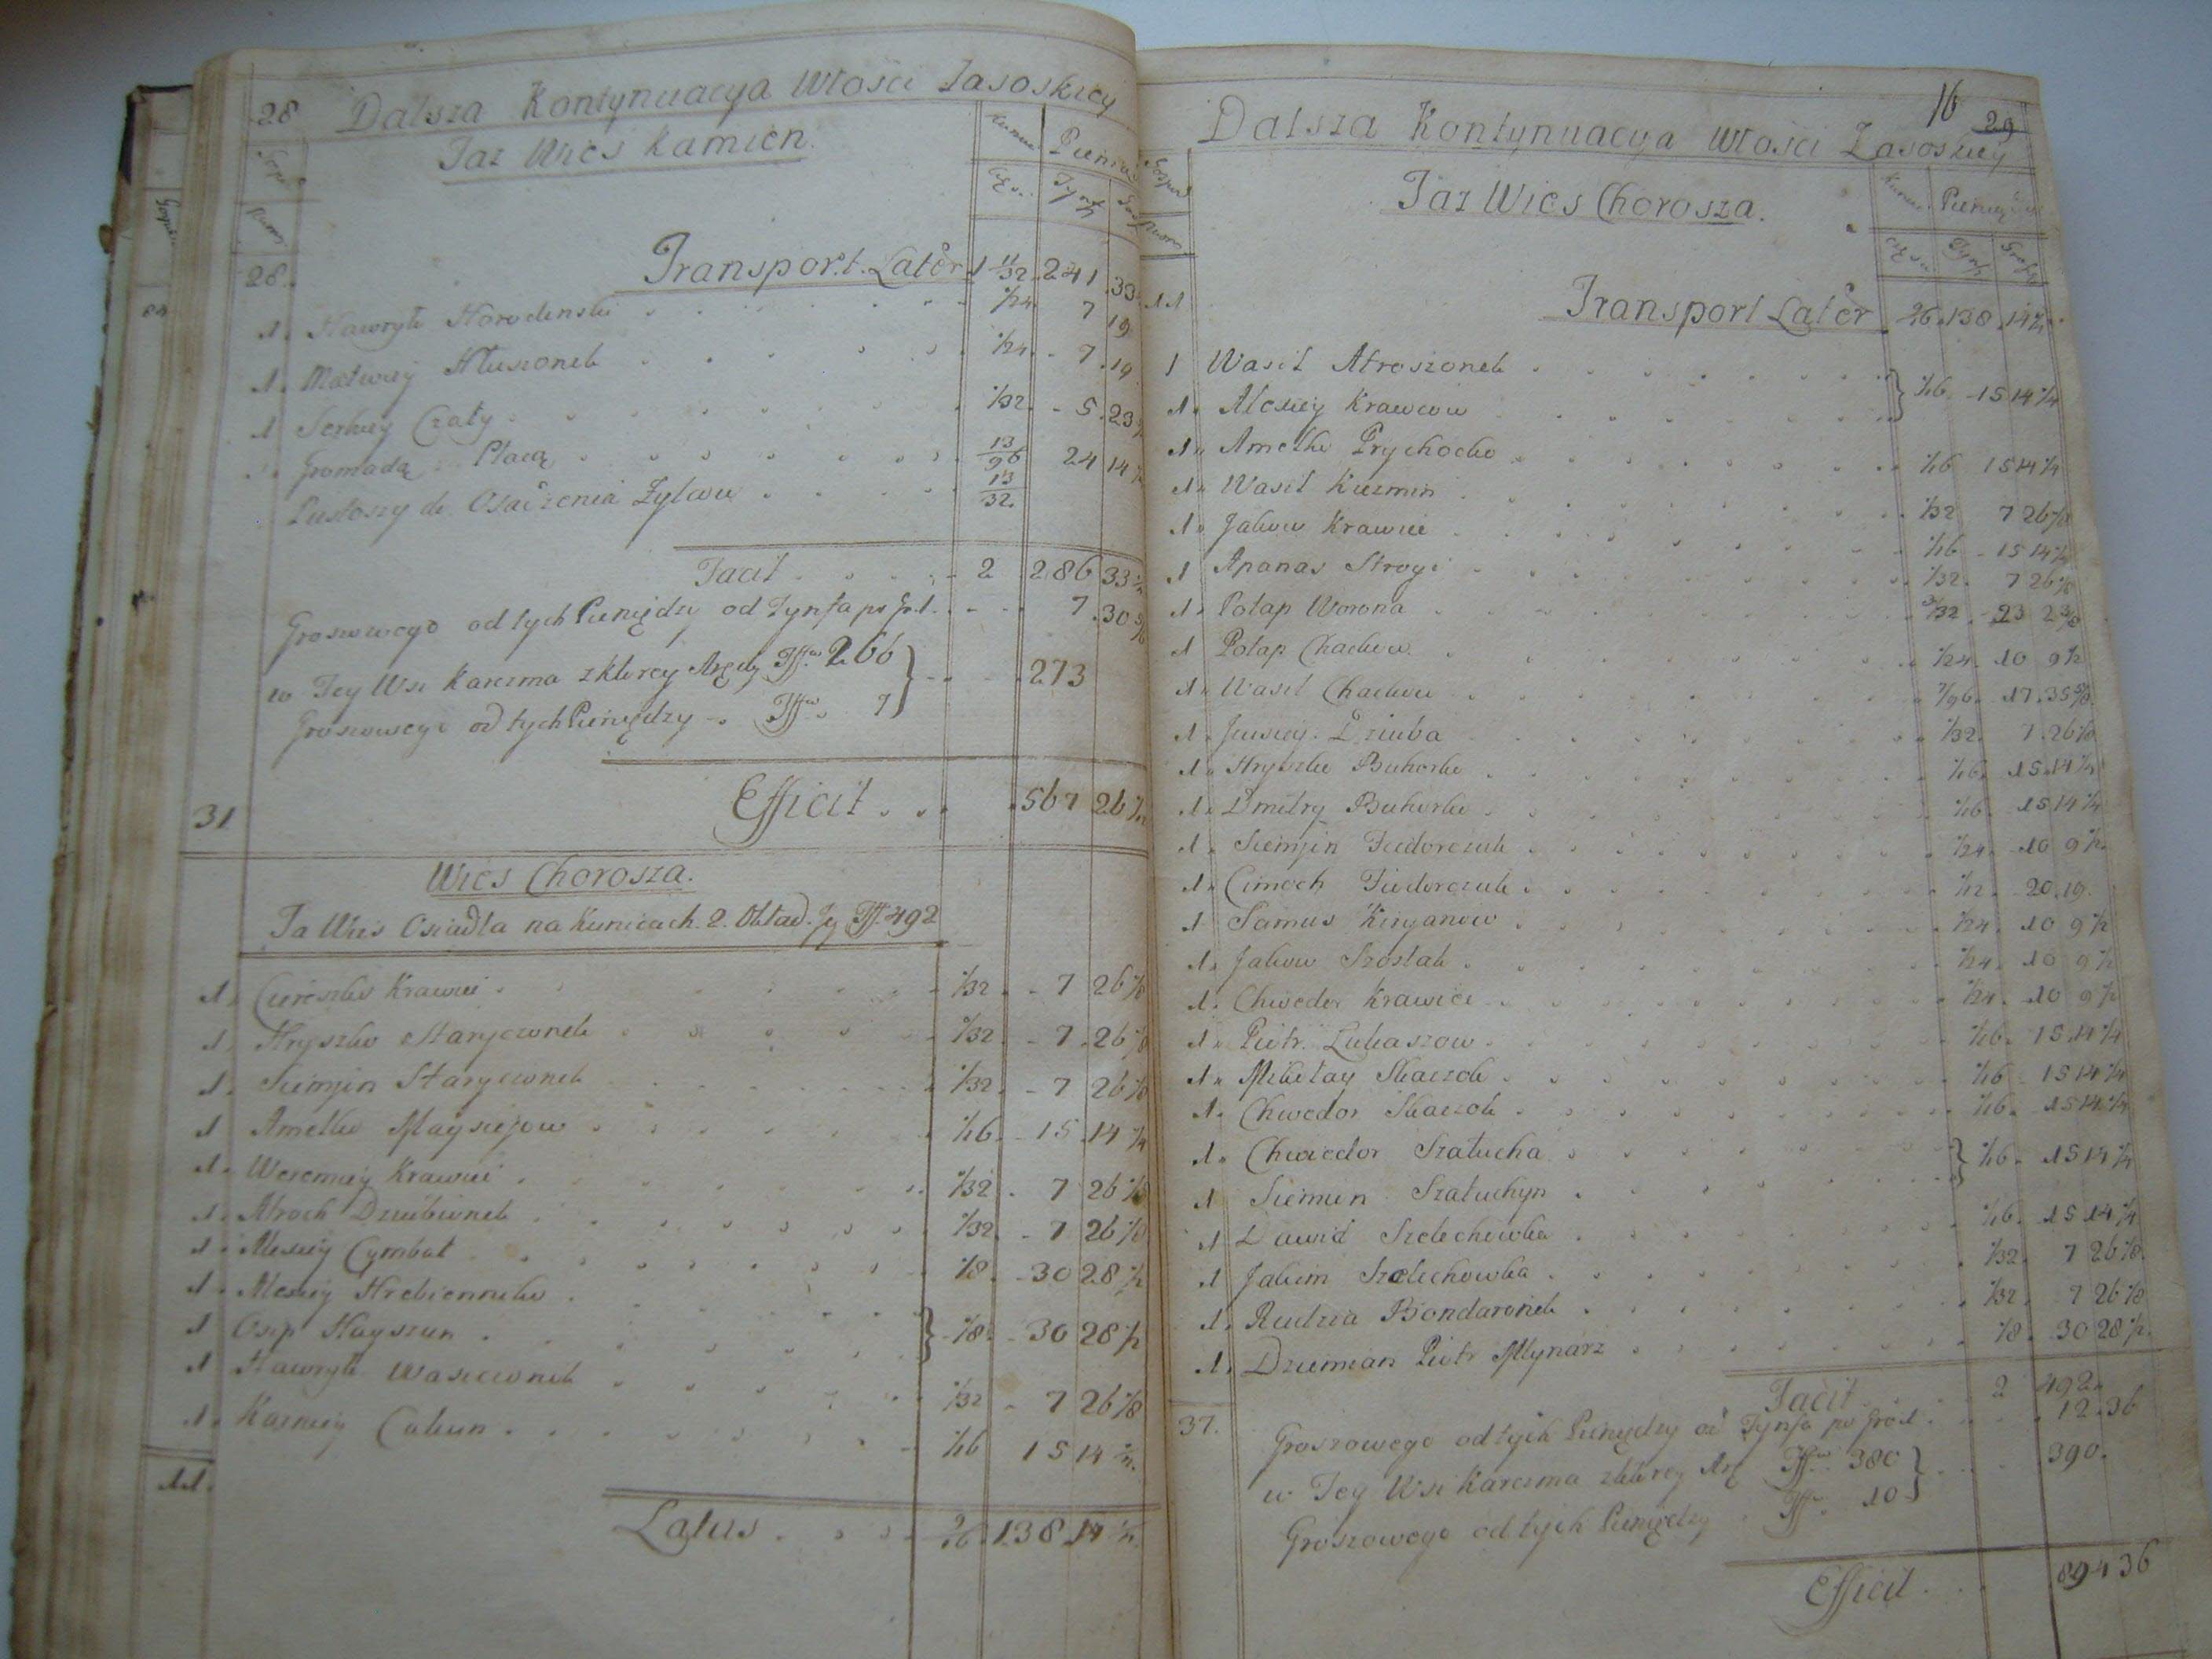 28 Dalsza Kontynuacya Włości Zasoskiey
Taz Wies Kamien.
Transport Later 1 11/32 241 33
28.
1. Hawryło Horodenski 1/24 7 19
1. Matwiey Hłuszonek 1/24 7 19
1 Serhiey Czały 1/32 5 23
Gromadą Płacą 13/96 24 14
Pustoszy do Osadzenia Zyłowu 13/32
Facit 2 286 33
Groszowego od tych Pieniędzy od Tynfa po Gr. 1. 7 30
w Tey Wsi Karczma z ktorey Arędy Tff. 266 } 273
Groszowego od tych Pieniędzy Tff. 7
31 Efficit 567 26
Wies Chorosza.
Ta Wies Osiadła na Kunicach 2. Tff. 492
1. Krawiec 1/32 7 26 1/8
1. Hryszko Staryczonek 1/32 7 26 1/8
1. Siemjin Staryczonek 1/32 7 26 1/8
1 Amelko Maysiejow 1/16 15 14 1/4
1. Weremiey Krawiec 1/32 7 26 1/8
1. Atroch Dziubionek 1/32 7 26 1/8
1. Alexiey Cymbał 1/8 30 28 1/2
1. Alexiey Hrebiennikow
1 Osip Hayszun } 1/8 30 28 1/2
1 Hawryło Wasiewonek 1/32 7 26 1/8
1. Kozmiey Cahun 1/16 15 14
11.
Latus 9/16 138 14
16 29
Dalsza Kontynuacya Włosci Zasoskiey
Taz Wies Chorosza.
Pieniędzy
11
Transport Later 9/16 138 14
1 Wasil Atroszonek
1. Alexiey Krawcow } 1/16 15 14 1/4
1. Amelko Prychodko 1/16 15 14 1/4
1. Wasil Kuzmin 1/32 7 26 1/8
1. Jakow Krawiec 1/16 15 14 1/4
1 Apanas Strogi 1/32 7 26 1/8
1. Potap Worona 3/32 23 2 3/8
1 Potap Chackow 1/24 10 9 1/2
1. Wasil Chackow 7/96 17 35 5/8
1. Dziuba 1/32 7 26 1/8
1. Hryszko Buhorko 1/16 15 14 1/4
1. Dmitry Buhorko 1/16 15 14 1/4
1. Siemjin Fiedorczuk 1/24 10 9 1/2
1. Cimoch Fiedorczuk 1/12 20 19
1 Samus Kiryanow 1/24 10 9 1/2
1. Jakow Szostak 1/24 10 9 1/2
1. Chwedor Krawiec 1/24 10 9 1/2
1. Piotr Lukaszow 1/16 15 14 1/4
1. Mikołay Skaczok 1/16 15 14 1/4
1. Chwedor Skaczok 1/16 15 14 1/4
1. Chwiedor Szałucha
1 Siemien Szałuchyn } 1/16 15 14 1/4
1 Dawid Szelechowka 1/16 15 14 1/4
1 Jakim Szelechowka 1/32 7 26 1/8
1. Rudzia Bondaronek 1/32 7 26 1/8
1. Dziemian Piotr Młynarz 1/8 30 28 1/2
Facit 2 492
37. Groszowego od tych Pieniędzy od Tynfa po Gro 1. 12 36
w Tey Wsi Karczma z ktorey Arę Tff. 380 } 390.
Groszowego od tych Pieniędzy Tff. 10
Efficit 894 36